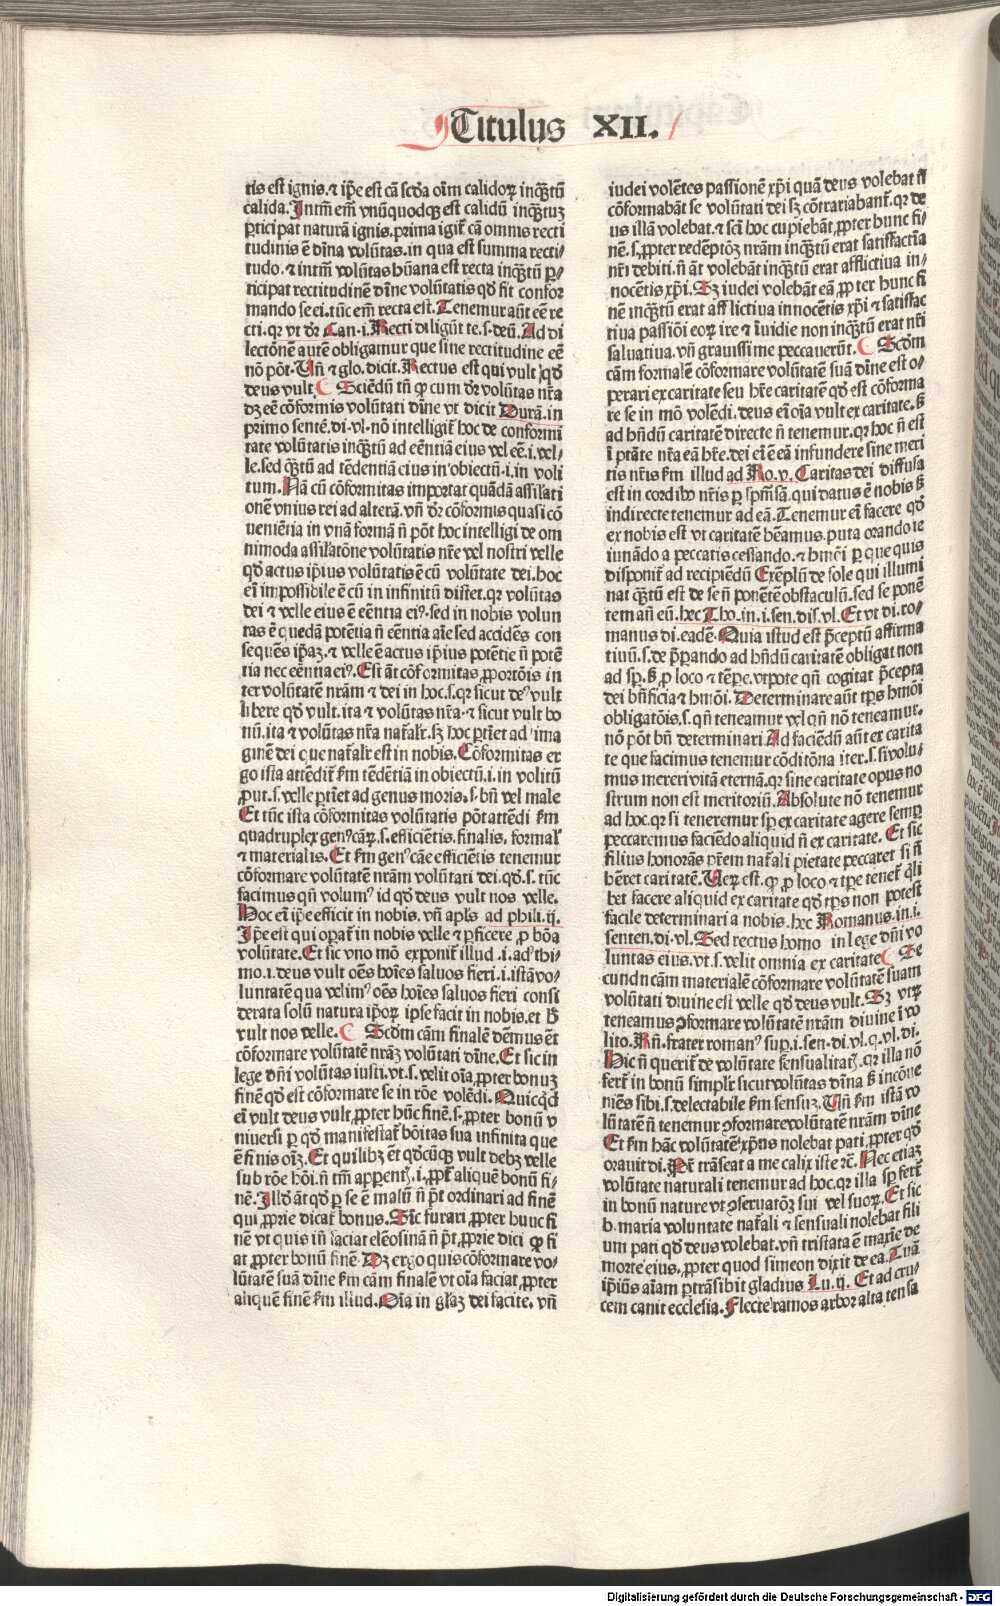 Titulus XII.
tis est ignis. ⁊ ip̄e est cā sc̄da oīm calidoꝝ inq̄ꝫtū
calida. Intm̄ em̄ vnūquodqꝫ est calidū inq̄ꝫtuꝫ
ꝑticipat naturā ignis. prima igit᷑ cā omnis recti
tudinis ē dīna volūtas. in qua est summa recti/
tudo. ⁊ intm̄ volūtas hūana est recta inq̄ꝫtū ꝑ/
ticipat rectitudinē dīne volūtatis qd̄ fit confor
mando se ei. tūc em̄ recta est. Tenemur aūt eē re
cti. qꝛ vt dr̄ Can. i. Recti diligūt te. s. deū. Ad di
lectōnē autē obligamur que sine rectitudine eē
nō pōt. Vn̄ ⁊ glo. dicit. Rectus est qui vult qd̄
deus vult Sciēdū tn̄ ꝙ cum dr̄ volūtas nr̄a
dꝫ eē cōformis volūtati dīne vt dicit Durā. in
primo sentē. di. vl. nō intelligit᷑ hoc de conformi
tate volūtatis inq̄ꝫtū ad eēntiā eius vel eē. i. vel/
le. sed q̄ꝫtū ad tēdentiā eius in obiectū. i. in voli
tum. Nā cū cōformitas importat quādā assilati
onē vnius rei ad alterā. vn̄ dr̄ cōformis quasi cō
ueniētia in vnā formā n̄ pōt hoc intelligi de om
nimoda assilatōne volūtatis nr̄e vel nostri velle
qd̄ actus ip̄ius volūtatis ē cū volūtate dei. hoc
ei᷑ impossibile ē cū in infinitū distet. qꝛ volūtas
dei ⁊ velle eius ē eēntia eiꝰ. sed in nobis volun
tas ē quedā potētia n̄ eēntia aīe sed accidēs con
sequēs ip̄aꝫ. ⁊ velle ē actus ip̄ius potētie n̄ potē
tia nec eēntia eiꝰ. Est āt cōformitas ꝓportōis in
ter volūtatē nrām ⁊ dei in hoc. s. qꝛ sicut deꝰ vult
libere qd̄ vult. ita ⁊ volūtas nr̄a. ⁊ sicut vult bo
nū. ita ⁊ volūtas nr̄a nat᷑alr̄. sꝫ hoc ꝑtiet ad ima
ginē dei que nat᷑alr̄ est in nobis. Cōformitas er
go ista attēdit᷑ ẜm tēdētiā in obiectū. i. in volitū
ꝓut. s. velle ꝑtiet ad genus moris. s. bn̄ vel male
Et tūc ista cōformitas volūtatis pōt attēdi ẜm
quadruplex genꝰ cāꝝ. s. efficiētis. finalis, formal᷑
⁊ materialis. Et ẜm genꝰ cāe efficiētis tenemur
cōformare volūtatē nrām volūtati dei. qd̄. s. tūc
facimus qn̄ volumꝰ id qd̄ deus vult nos velle.
Hoc ei᷑ ip̄e efficit in nobis. vn̄ apl̄s ad phili. ij.
Ip̄e est qui opat᷑ in nobis velle ⁊ ꝑficere ꝓ bōa
volūtate. Et sic vno mō exponit᷑ illud .i. ad thi/
mo. i. deus vult oēs hoīes saluos fieri. i. istā vo/
luntatē qua velimꝰ oēs hoīes saluos fieri consi
derata solū natura ip̄oꝝ ipse facit in nobis. et ꝟ
vult nos velle. Scd̄m cām finalē dēmus et
cōformare volūtatē nrāꝫ volūtati dīne. Et sic in
lege dn̄i volūtas iusti. vt. s. velit oīa, ꝓpter bonuꝫ
finē qd̄ est cōformare se in rōe volēdi. Quicqd̄
ei᷑ vult deus vult, ꝓpter hūc finē. s. ꝓpter bonū v
niuersi ꝑ qd̄ manifestat᷑ bōitas sua infinita que
ē finis oīꝫ. Et quilibꝫ et qd̄cūqꝫ vult debꝫ velle
sub rōe bōi. n̄ tm̄ appentꝫ. i. ꝓpt᷑ aliquē bonū fi/
nē. Illd̄ āt qd̄ ꝑ se ē malū n̄ p̄t ordinari ad finē
qui, ꝓprie dicat᷑ bonus. Sic furari ꝓpter hunc fi
nē vt quis in faciat eleōsinā n̄ p̄t, ꝓprie dici ꝙ fi
at ꝓpter bonū finē. Dꝫ ergo quis cōformare vo/
lūtatē suā dīne ẜm cām finalē vt oīa faciat, ꝓpter
aliquē finē ẜm illud. Oīa in gl̄aꝫ dei facite. vn̄
iudei volētes passionē xp̄i quā deus volebat n̄
cōformabāt se volūtati dei sꝫ cōtrariabant᷑. qꝛ de
us illā volebat. ⁊ sc̄i hoc cupiebāt, ꝓpter hunc fi/
nē. s. ꝓpter redēptōꝫ nrām inq̄ꝫtū erat satisfactīa
nr̄i debiti. n̄ āt volebāt inq̄ꝫtū erat afflictiua in/
nocētis xp̄i. Sꝫ iudei volebāt eā ꝓpter hunc fi
nē inq̄ꝫtū erat afflictiua innocētis xp̄i ⁊ satisfac
tiua passiōi eoꝝ ire ⁊ īuidie non inq̄ꝫtū erat nr̄i
saluatiua. vn̄ grauissime peccauerūt. Scd̄m
cām formalē cōformare volūtatē suā dīne est o/
perari ex caritate seu hr̄e caritatē qd̄ est cōforma
re se in mō volēdi. deus ei᷑ oīa vult ex caritate. ꝟ
ad hn̄dū caritatē directe n̄ tenemur. qꝛ hoc n̄ est
ī ptāte nr̄a eā hr̄e. dei ei᷑ ē eā infundere sine meri
tis nr̄is ẜm illud ad Ro. v. Caritas dei diffusa
est in cordibꝰ nr̄is ꝑ sp̄m sc̄m qui datus ē nobis ꝟ
indirecte tenemur ad eā. Tenemur ei᷑ facere qd̄
ex nobis est vt caritatē hēamus. puta orando ie
iunādo a peccatis cessando. ⁊ hmōi ꝑ que quis
disponit᷑ ad recipiēdū Exēplū de sole qui illumi
nat q̄ꝫtū est de se n̄ ponētē obstaculū. sed se ponē
tem añ eū. hec Tho. in. i. sen. dis. vl. Et vt di. ro/
manus di. eadē. Quia istud est p̄ceptū affirma
tiuū. s. de p̄parando ad hn̄dū caritatē obligat non
ad sp̄. ꝟ ꝓ loco ⁊ tēpe. vtpote qn̄ cogitat p̄cepta
dei bn̄ficia ⁊ hmōi. Determinare aūt tp̄s hmōi
obligatōis. s. qn̄ teneamur vel qn̄ nō teneamur.
nō pōt bn̄ determinari. Ad faciēdū aūt ex carita
te que facimus tenemur cōditōna iter. s. si volu/
mus mereri vitā eternā. qꝛ sine caritate opus no
strum non est meritoriū. Absolute nō tenemur
ad hoc. qꝛ si teneremur sp̄ ex caritate agere semꝑ
peccaremus faciēdo aliquid n̄ ex caritate. Et sic
filius honorās pr̄em nat᷑ali pietate peccaret si n̄
hēret caritatē. Veꝝ est. ꝙ ꝓ loco ⁊ tp̄e tenet᷑ q̄li
bet facere aliquid ex caritate qd̄ tp̄s non potest
facile determinari a nobis. hec Romanus. in. i.
senten. di. vl. Sed rectus homo in lege dn̄i vo
luntas eius. vt. s. velit omnia ex caritate Se
cundn cām materialē cōformare volūtatē suam
volūtati diuine est velle qd̄ deus vult. Sꝫ vtꝝ
teneamus ꝯformare volūtatē nrām diuine ī vo
lito. Rn̄. frater romanꝰ sup. i. sen. di. vl. q. vl. di.
Hic n̄ querit᷑ de volūtate sensualitatꝫ. qꝛ illa nō
fert᷑ in bonū simplr̄ sicut volūtas dīna ꝟ incōue
niēs sibi. s. delectabile ẜm sensuꝫ. Vn̄ ẜm istā vo
lūtatē n̄ tenemur ꝯformare volūtatē nrām dīne
Et ẜm hāc volūtatē xp̄us nolebat pati, ꝓpter qd̄
orauit di. Pr̄ trāseat a me calix iste ⁊c. Nec etiaꝫ
volūtate naturali tenemur ad hoc. qꝛ illa sp̄ fert᷑
in bonū nature vt ꝯseruatōꝫ sui vel suoꝝ. Et sic
b. maria voluntate nat᷑ali ⁊ sensuali nolebat fili
um pati qd̄ deus volebat. vn̄ tristata ē maxīe de
morte eius, ꝓpter quod simeon dixit de ea. Tuā
ip̄iūs aīam ꝑtrāsibit gladius Lu. ij. Et ad cru/
cem canit ecclesia. Flecte ramos arbor alta tensa
Digitalisierung gefördert durch die Deutsche Forschungsgemeinschaft - DFG